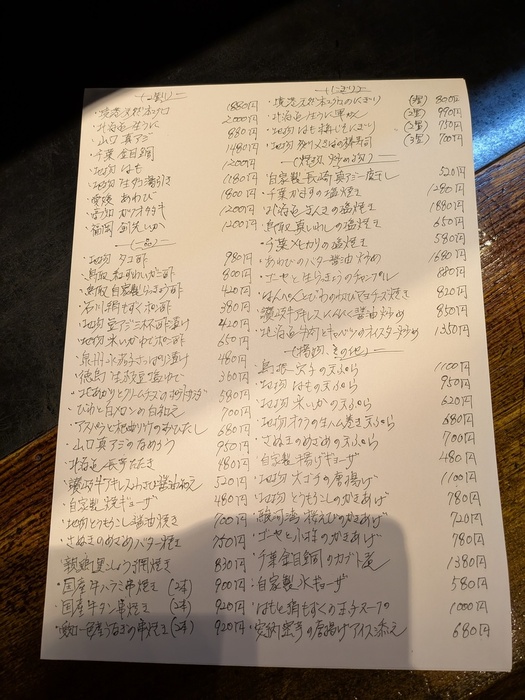 境港天然本マグロ 1880円
北海道生うに 2000円
山口真アジ 880円
千葉金目鯛 1480円
地物はも 1200円
1180円
愛媛あわび 1800円
1200円
1200円
―(一品)―
地物タコ酢 980円
鳥取紅ずわいがに酢 800円
鳥取自家製らっきょう酢 420円
石川絹もずく酢 380円
地物豆アジ三杯酢漬け 420円
地物 650円
泉州水茄子さっぱり漬け 480円
徳島生 360円
580円
びわと白 の白和え 700円
680円
山口真アジのなめろう 950円
北海道長芋たたき 480円
讃岐牛アキレス 520円
自家製焼ギョーザ 480円
地物とうもろこし醤油焼き 700円
バター焼き 750円
網焼き 830円
・国産牛ハラミ串焼き (2本) 900円
・国産牛タン串焼き (2本) 920円
・愛知一色産うなぎの串焼き (2本) 920円
―(にぎり)―
・境港天然本マグロのにぎり (3貫) 800円
・北海道生うに軍艦 (3貫) 990円
・地物はも (3貫) 750円
・地物 棒寿司 (3貫) 700円
―(焼物、炒め物)―
自家製長崎真アジ一夜干し 520円
・千葉かますの塩焼き 1280円
・北海道きんきの塩焼き 1880円
・鳥取真いわしの塩焼き 650円
・千葉メヒカリの塩焼き 580円
・あわびのバター醤油炒め 1680円
・ゴーヤと生らっきょうのチャンプル 880円
・はんぺんと マヨチーズ焼き 820円
・讃岐牛アキレスにんにく醤油炒め 850円
・北海道牛肉とキャベツのオイスター炒め 1350円
―(揚物、その他)―
・島根穴子の天ぷら 1100円
・地物はもの天ぷら 950円
・地物米いかの天ぷら 620円
・地物オクラの 天ぷら 680円
・ の天ぷら 700円
・自家製揚げギョーザ 480円
・地物大ゴチの唐揚げ 1100円
・地物とうもろこしのかきあげ 780円
・駿河湾桜えびのかきあげ 720円
・ゴーヤと小柱のかきあげ 780円
・千葉金目鯛のカブト煮 1380円
・自家製水ギョーザ 580円
・はもと絹もずくの玉子スープ 1000円
・安納蜜芋の唐揚げアイス添え 680円